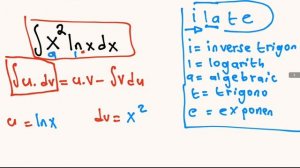 ∫x² ln x dx
a l
∫u.dv = u.v - ∫vdu
u = lnx dv = x²
i l a t e
i = inverse trigon
l = logarith
a = algebraic
t = trigono
e = exponen